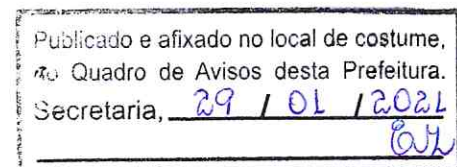 Publicado e afixado no local de costume,
no Quadro de Avisos desta Prefeitura.
Secretaria, 29 / 01 / 2021